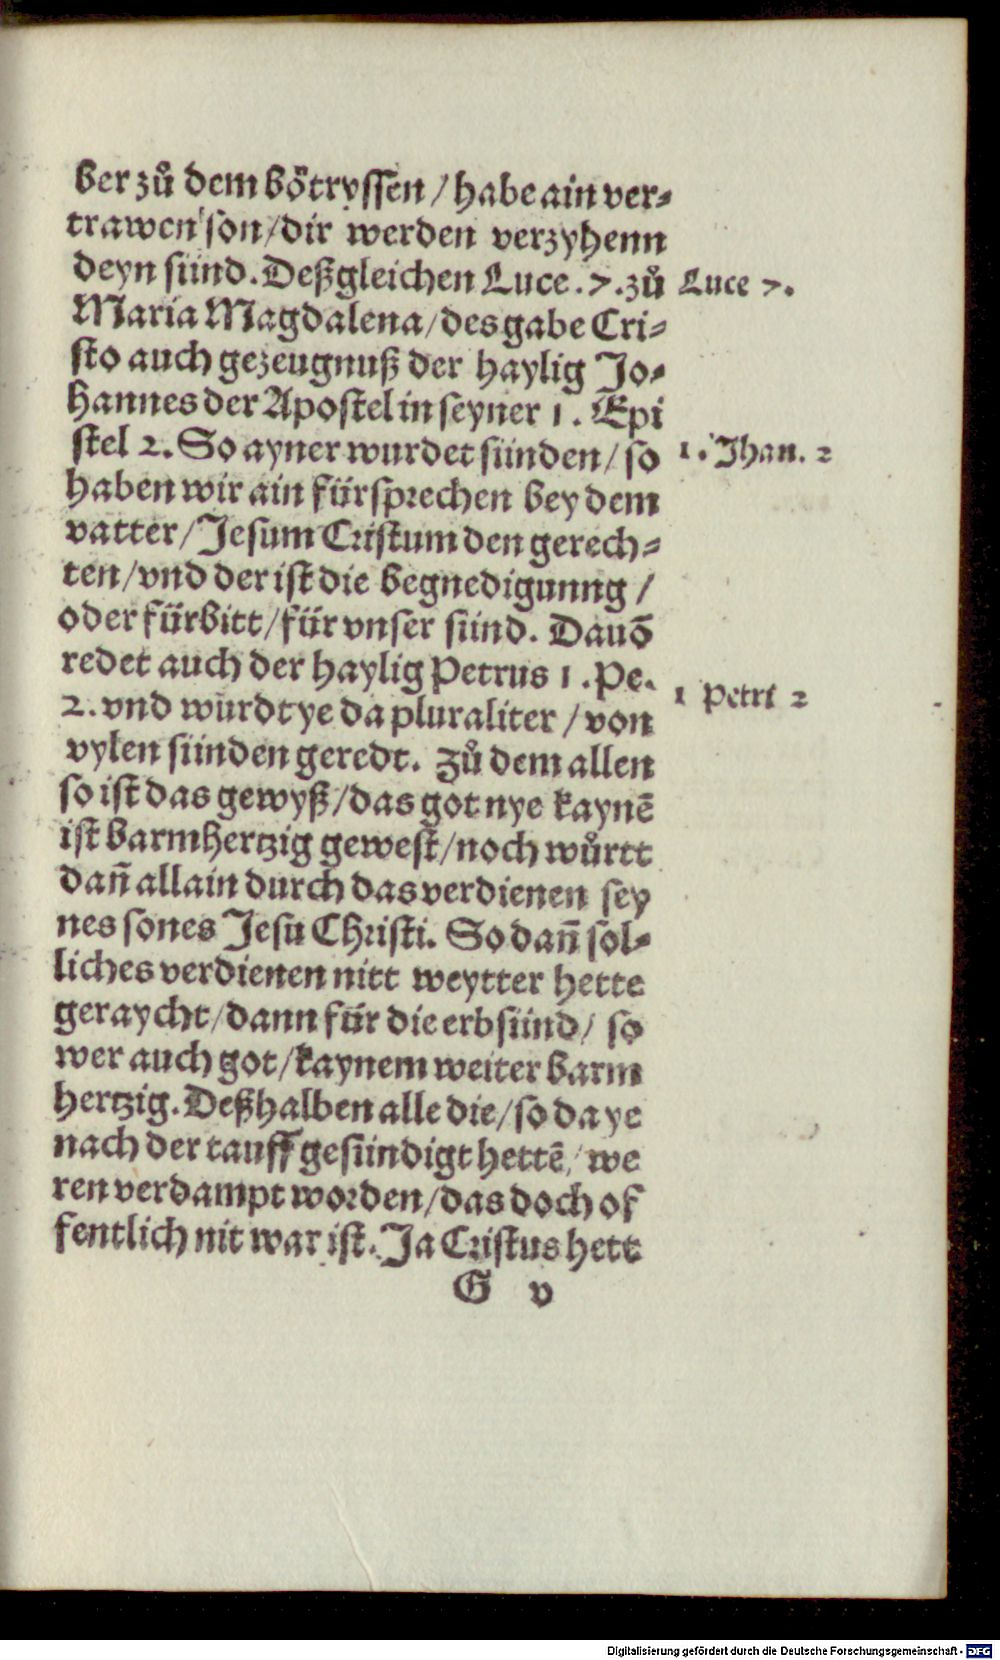 ber zů dem bötryssen / habe ain ver⸗
trawen son / dir werden verzyhenn
deyn sünd. Deßgleichen Luce. 7. zů
Luce 7.
Maria Magdalena / des gabe Cri⸗
sto auch gezeugnuß der haylig Jo⸗
hannes der Apostel in seyner 1. Epi
stel 2. So ayner wurdet sünden / so
1. Jhan. 2
haben wir ain fürsprechen bey dem
vatter / Jesum Cristum den gerech⸗
ten / vnd der ist die begnedigunng /
oder fürbitt / für vnser sünd. Dauō
redet auch der haylig Petrus 1. Pe.
1 Petri 2
2. vnd würdt ye da pluraliter / von
vylen sünden geredt. Zů dem allen
so ist das gewyß / das got nye kaynē
ist barmhertzig gewest / noch wůrtt
dañ allain durch das verdienen sey
nes sones Jesu Christi. So dañ sol⸗
liches verdienen nitt weytter hette
geraycht / dann für die erbsünd / so
wer auch got / kaynem weiter barm
hertzig. Deßhalben alle die / so da ye
nach der tauff gesündigt hettē / we
ren verdampt worden / das doch of
fentlich nit war ist. Ja Cristus hett
G v
Digitalisierung gefördert durch die Deutsche Forschungsgemeinschaft - DFG